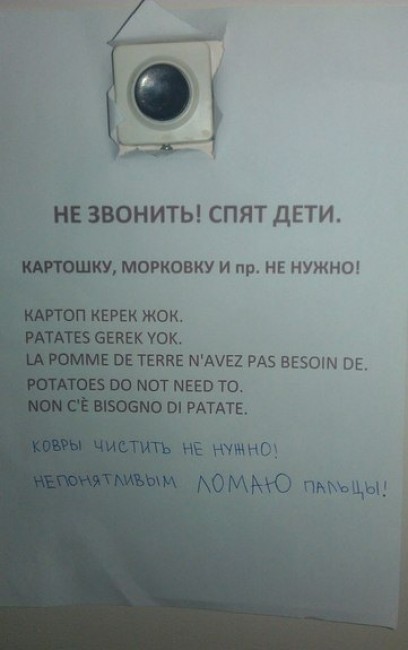 НЕ ЗВОНИТЬ! СПЯТ ДЕТИ.
КАРТОШКУ, МОРКОВКУ И пр. НЕ НУЖНО!
КАРТОП КЕРЕК ЖОК.
PATATES GEREK YOK.
LA POMME DE TERRE N'AVEZ PAS BESOIN DE.
POTATOES DO NOT NEED TO.
NON C'È BISOGNO DI PATATE.
КОВРЫ ЧИСТИТЬ НЕ НУЖНО!
НЕПОНЯТЛИВЫМ ЛОМАЮ ПАЛЬЦЫ!